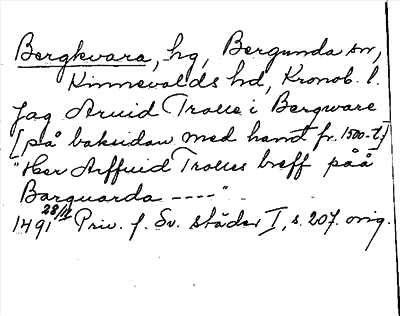 Bergkvara, hg, Bergunda sn,
Kinnevalds hd, Kronob. l.
Jag Arvid Trolle i Bergware
[på baksidan med hand fr. 1500-t.]
"Her Arffuid Trolles breff påå
Barquarda ----"
1491 28/2 Priv. f. Sv. städer I, s. 207. orig.